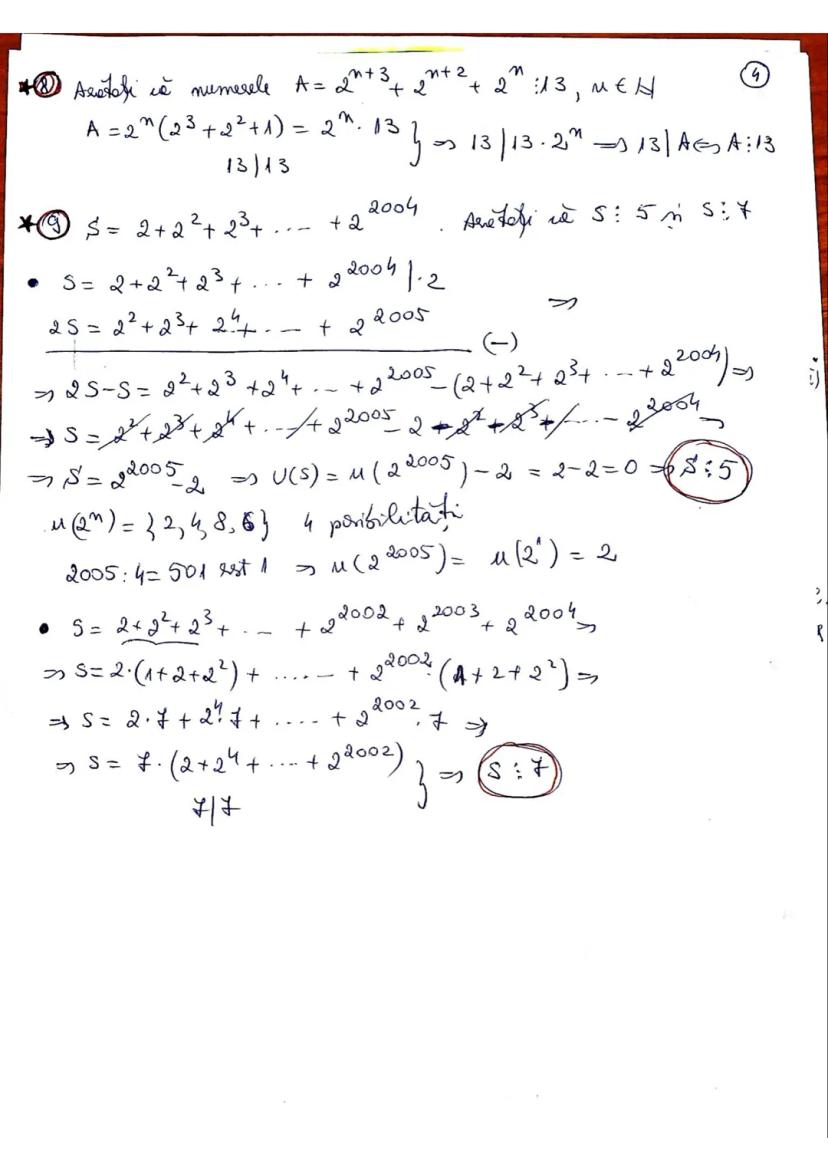 ④
*⑧ Arătați că numerele A = 2^{n+3} + 2^{n+2} + 2^n ⋮ 13, n ∈ N
A = 2^n (2^3 + 2^2 + 1) = 2^n · 13 } ⇒ 13 | 13 · 2^n ⇒ 13 | A ⇔ A ⋮ 13
13 | 13
*⑨ S = 2 + 2^2 + 2^3 + .... + 2^{2004}. Arătați că S ⋮ 5 și S ⋮ 7
• S = 2 + 2^2 + 2^3 + ... + 2^{2004} | · 2
⇒
2S = 2^2 + 2^3 + 2^4 + ... + 2^{2005}
(−)
⇒ 2S − S = 2^2 + 2^3 + 2^4 + ... + 2^{2005} − (2 + 2^2 + 2^3 + ... + 2^{2004}) ⇒
⇒ S = 2^2 + 2^3 + 2^4 + ... + 2^{2005} − 2 − 2^2 + 2^3 + ... − 2^{2004} ⇒
⇒ S = 2^{2005} − 2 ⇒ U(S) = u(2^{2005}) − 2 = 2 − 2 = 0 ⇒ S ⋮ 5
u(2^n) = {2, 4, 8, 6} 4 posibilități
2005 : 4 = 501 rest 1 ⇒ u(2^{2005}) = u(2^1) = 2
• S = 2 + 2^2 + 2^3 + ... + 2^{2002} + 2^{2003} + 2^{2004} ⇒
⇒ S = 2 · (1 + 2 + 2^2) + ...... + 2^{2002} · (1 + 2 + 2^2) ⇒
⇒ S = 2 · 7 + 2^4 · 7 + .... + 2^{2002} · 7 ⇒
⇒ S = 7 · (2 + 2^4 + ... + 2^{2002}) } ⇒ S ⋮ 7
7 | 7